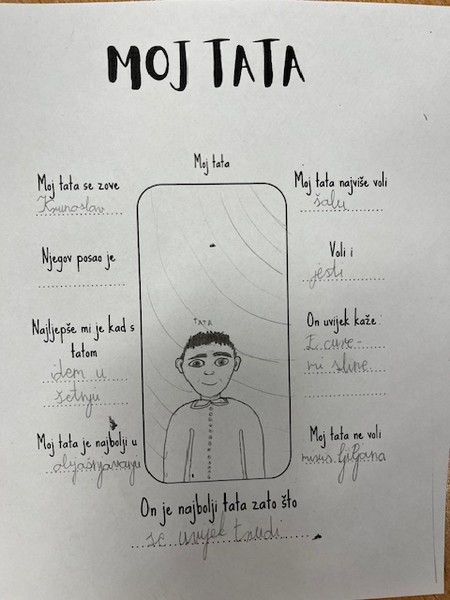 MOJ TATA
Moj tata
Moj tata se zove
Krunoslav
Njegov posao je
Najljepše mi je kad s
tatom
idem u
šetnju
Moj tata je najbolji u
objašnjavanju
TATA
Moj tata najviše voli
šalu
Voli i
jesti
On uvijek kaže:
I cure-
mi sline
Moj tata ne voli
miris ljiljana
On je najbolji tata zato što
se uvijek trudi.